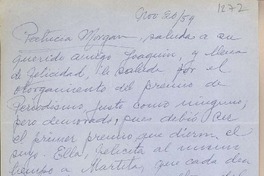 Nov 20/59
1872
Patricia Morgan, saluda a su
querido amigo Joaquín, y llena
de felicidad, le saluda por el
otorgamiento del premio de
Periodismo, justo como ninguno;
pero demorado; pues debió ser
el primer premio que dieron. El
suyo. Ella felicita al mismo
tiempo a Martita, que cada den